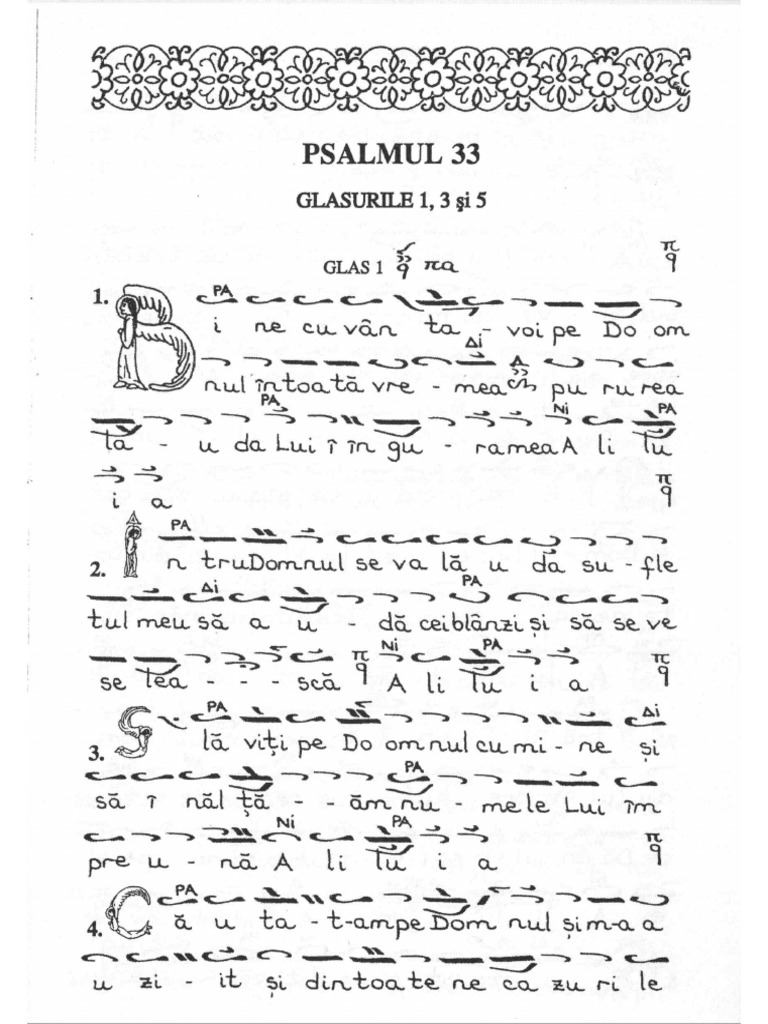 PSALMUL 33
GLASURILE 1, 3 şi 5
GLAS 1 πα π q
1. PA
B i ne cu vân ta - voi pe Do om
Δi
nul în toa tă vre - mea pu ru rea
PA Ni PA
ta - u da Lui î în gu - ra mea A li lu
i a π q
PA
2. Î n tru Domnul se va lă u da su - fle
Δi PA
tul meu să a u - dă cei blânzi şi să se ve
π q Ni PA π q
se lea - - - scă A li lu i a
PA Δi
3. S lă viţi pe Do om nul cu mi - ne şi
PA
să î năl ţă - - ăm nu - me le Lui îm
Ni PA π q
pre u - nă A li lu i a
PA
4. C ă u ta - t-am pe Dom nul şi m-a a
u zi - it şi din toa te ne ca zu ri le